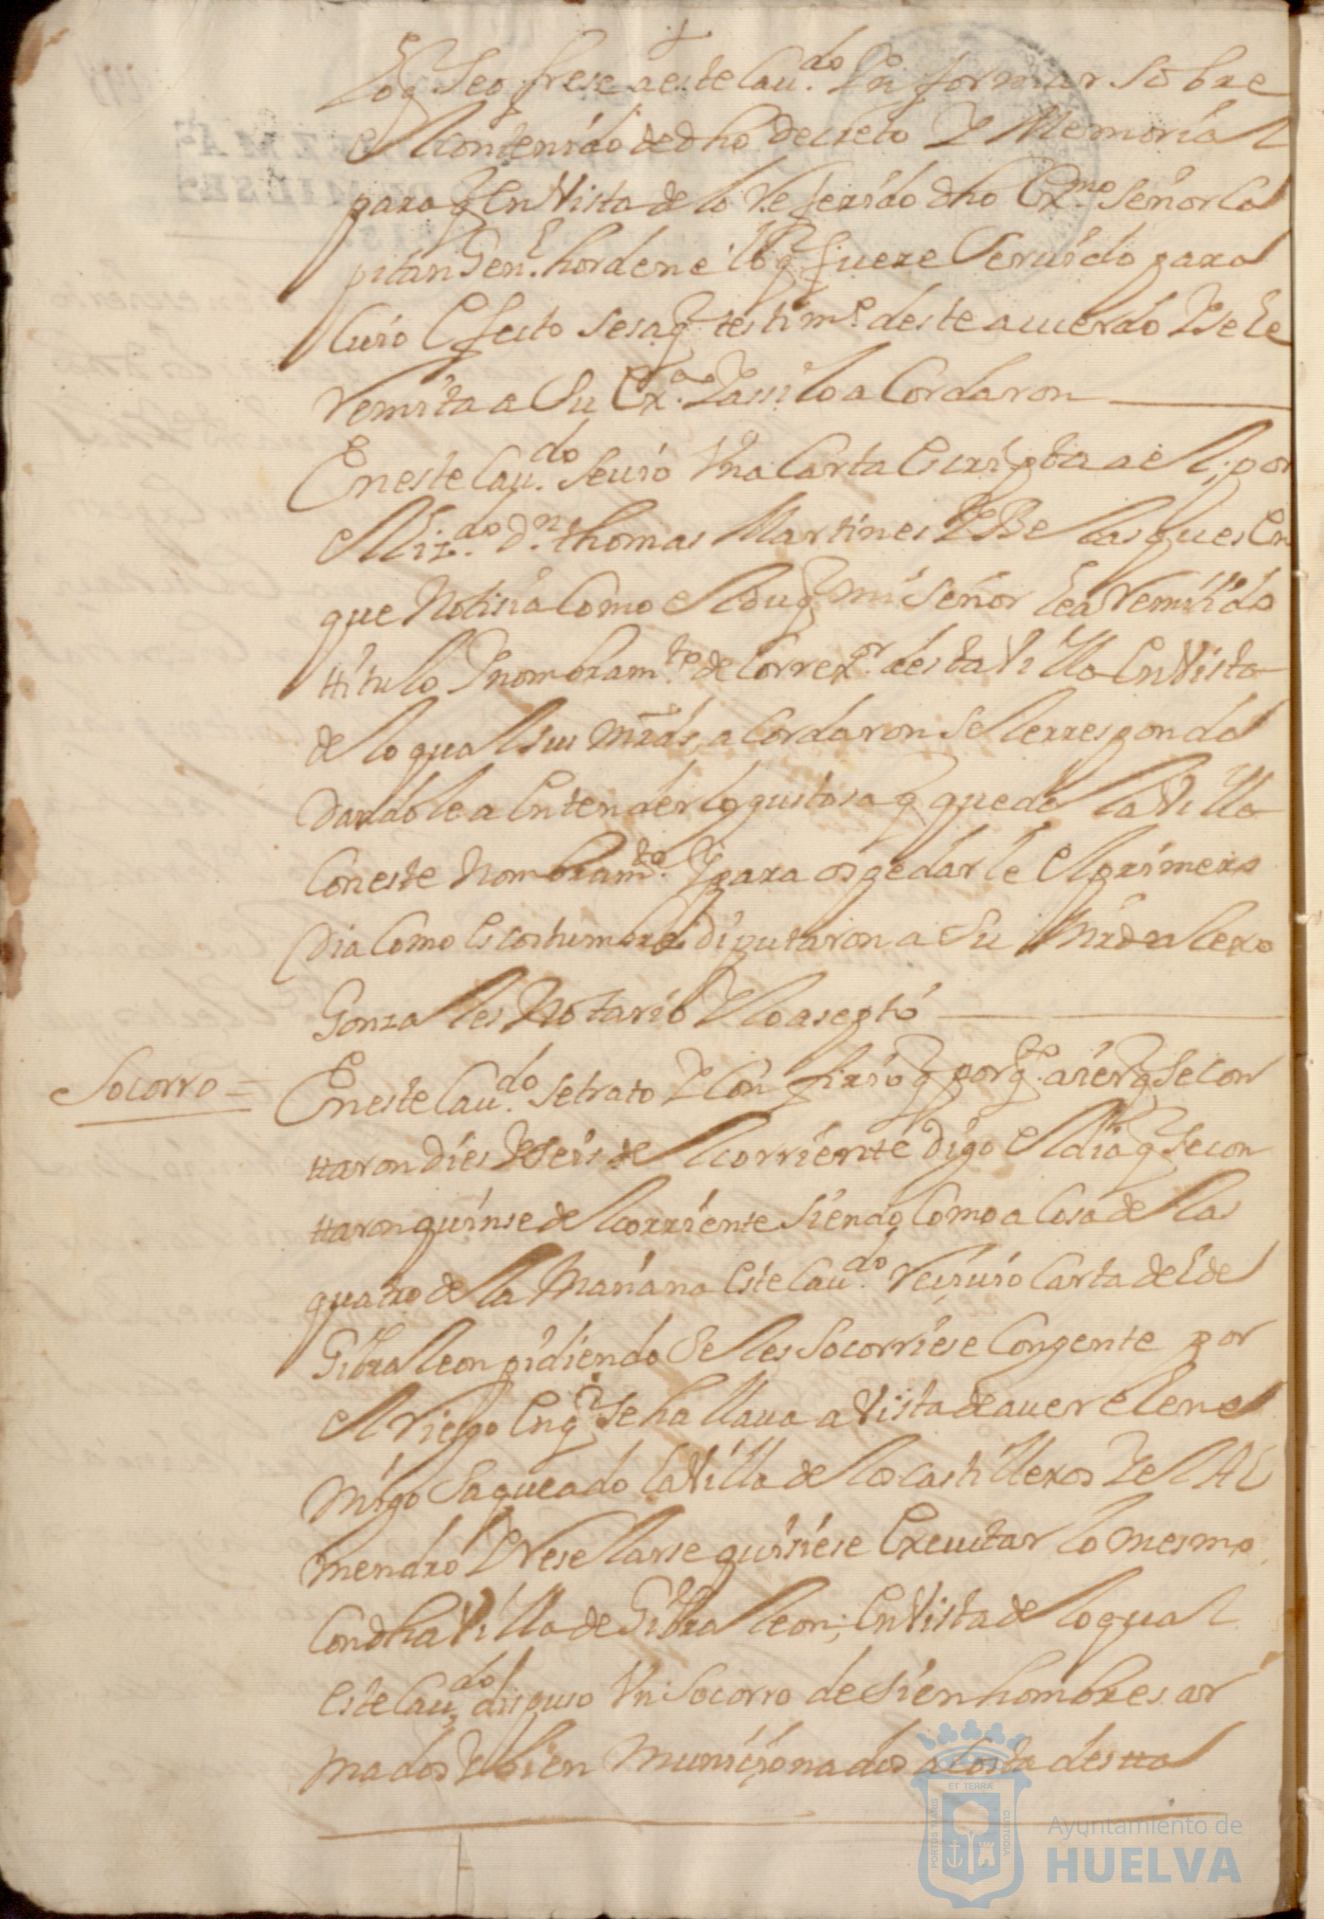 Lo q Se ofrese a este Cau.do Ynformar Sobre
el contenido de dho decreto Y Memorial
para q En Vista de lo Referido dho Ex.mo Señor Ca
pitan Gen.l hordene lo q fuere Seruido para
Cuio Efecto se saq testim.o deste acuerdo Y se le
Remita a Su Ex.a Y assi lo a Cordaron
En este Cau.do Se uio Vna Carta Escripta a el por
el Liz.do D.n thomas Martines Y Belasques En
que Notisia Como el duq mi Señor le a Remitido
titulo Y nombram.to de Correx.or desta Villa En Vista
de lo qual Sus Mrds, a Cordaron Se le rresponda
Dandole a Entender lo gustosa q queda la Villa
Con este Nombram.to Y para ospedarle el primero
Dia Como Es costumbre diputaron a Su Mrd Alexo
Gonzales Notario Y lo aseptó
Socorro =
En este Cau.do se trato Y Confirio q por q.to aier q Se con
ttaron dies Y seis de el corriente digo el dia q Se con
ttaron quinse del corriente Siendo Como a Cosa de las
quatro de la Mañana Este Cau.do Resiuio Carta de el de
Gibraleon pidiendo Se les Socorriese Con gente por
el Riesgo En q Se hallaua a Vista de auer el ene
migo Saqueado la Villa de los castillexos Y el Al
mendro Y Reselarse quisiese Executar lo mesmo
Con dha Villa de Gibraleon; En Vista de lo qual
Este Cau.do dispuso Vn Socorro de Sien hombres ar
mados Y bien Munisionados a Costa destta
ET TERRA
PORTUS MARIS
CUSTODIA
Ayuntamiento de
HUELVA